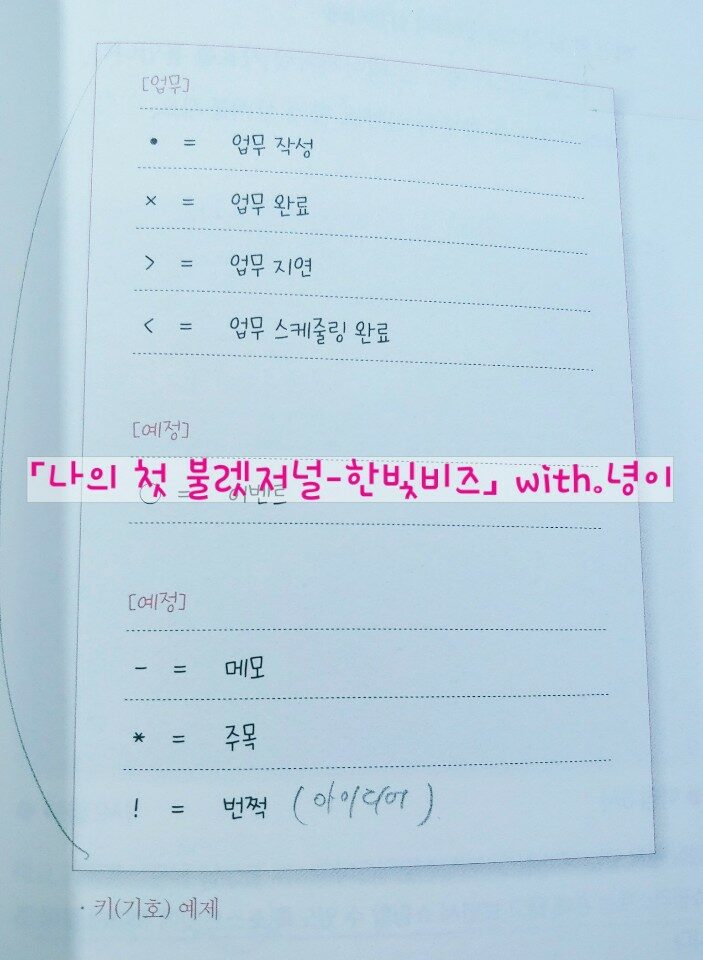 [업무]
• = 업무 작성
× = 업무 완료
> = 업무 지연
< = 업무 스케줄링 완료
[예정]
「나의 첫 불렛저널-한빛비즈」 with.녕이
○ = 이벤트
[예정]
- = 메모
* = 주목
! = 번쩍 (아이디어)
· 키(기호) 예제